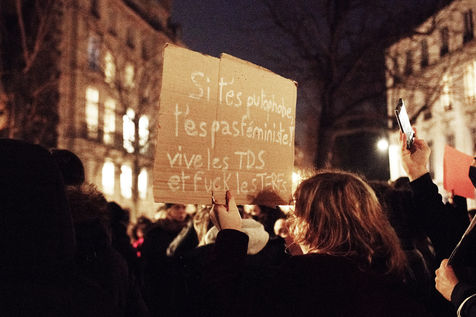 Si t'es putophobe,
t'es pas féministe!
vive les TDS
et fuck les TERFs